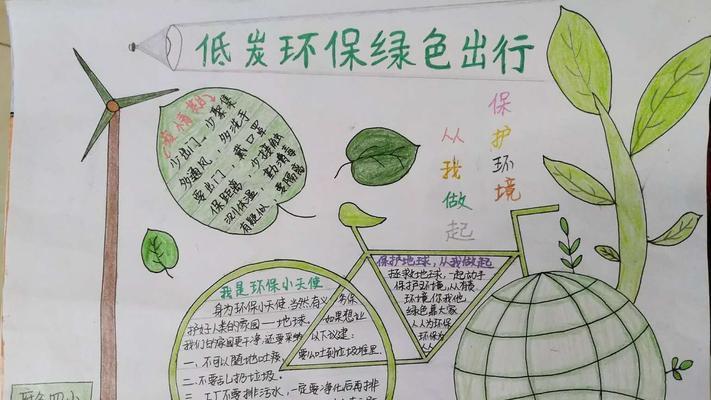 低炭环保绿色出行
疫情期
少出门，少聚集
多通风，多洗手
要出门 戴口罩
保距离 少接触
测体温 勤消毒
有疑似 要隔离
保护环境
从我做起
我是环保小天使
身为环保小天使 当然有义务保
护好人类的家园——地球，如果想让
我们的家园更干净，还要采纳以下议建：
一、不可以随地吐痰，要么吐到垃圾堆里．
二、不要乱扔垃圾．
三、工厂不要排污水，一定要净化后再排
保护地球，从我做起
拯救地球，一起动手
保护环境，从我
环境 你我他
绿色靠大家
人人为环保
环保为
人人
四小